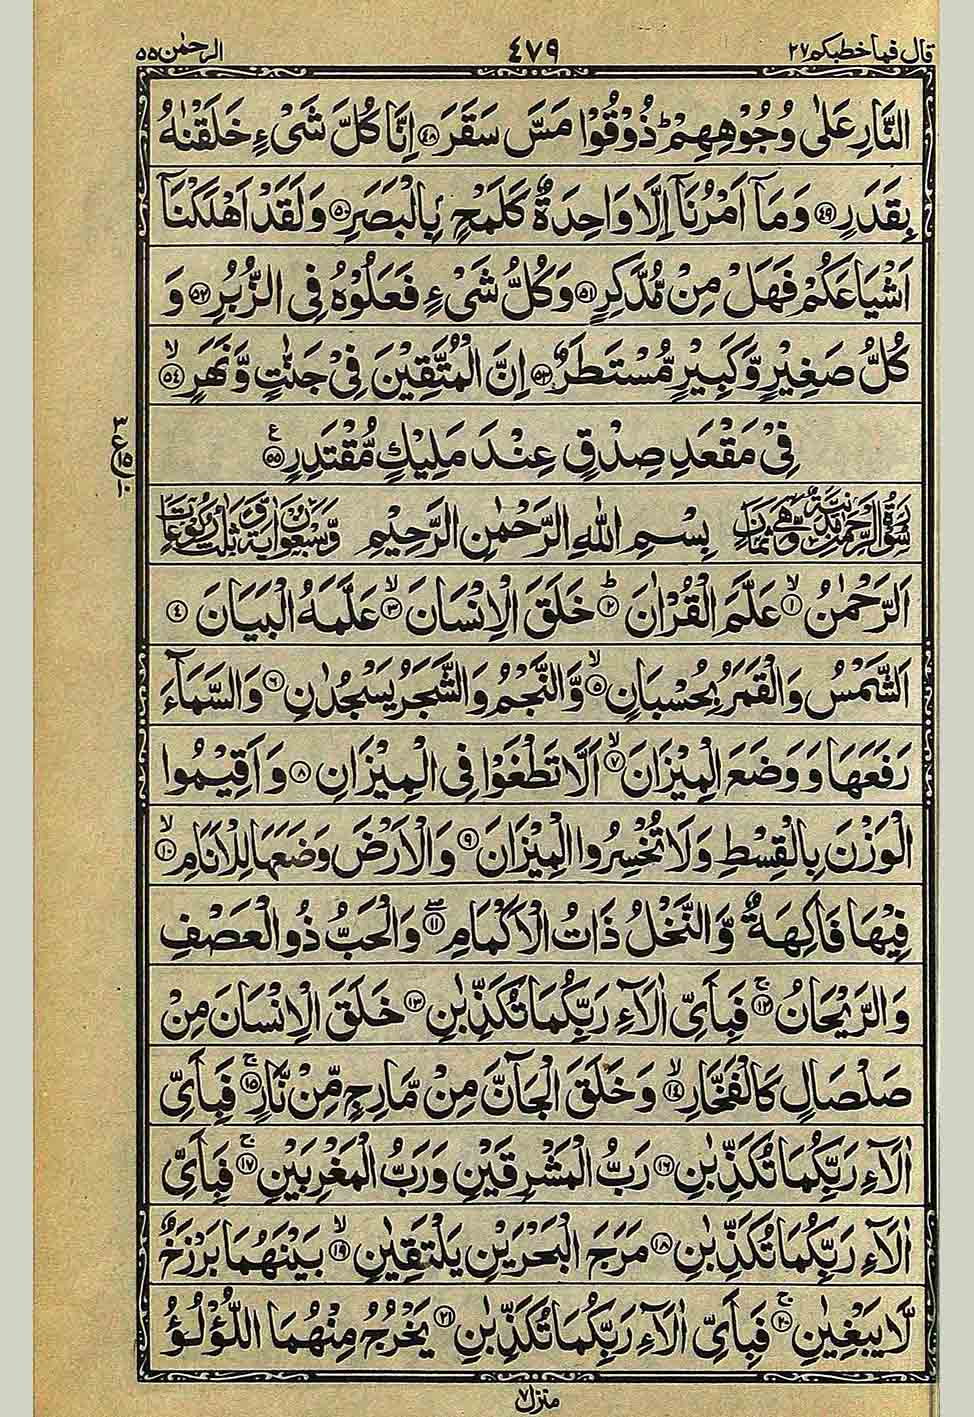 قال فما خطبكم ٢٧
٤٧٩
الرحمٰن ٥٥
النَّارِ عَلٰى وُجُوْهِهِمْ ؕ ذُوْقُوْا مَسَّ سَقَرَ ﴿٤٨﴾ اِنَّا كُلَّ شَىْءٍ خَلَقْنٰهُ
بِقَدَرٍ ﴿٤٩﴾ وَمَاۤ اَمْرُنَاۤ اِلَّا وَاحِدَةٌ كَلَمْحٍۭ بِالْبَصَرِ ﴿٥٠﴾ وَلَقَدْ اَهْلَكْنَاۤ
اَشْيَاعَكُمْ فَهَلْ مِنْ مُّدَّكِرٍ ﴿٥١﴾ وَكُلُّ شَىْءٍ فَعَلُوْهُ فِى الزُّبُرِ ﴿٥٢﴾ وَ
كُلُّ صَغِيْرٍ وَّكَبِيْرٍ مُّسْتَطَرٌ ﴿٥٣﴾ اِنَّ الْمُتَّقِيْنَ فِىْ جَنّٰتٍ وَّنَهَرٍ ۙ﴿٥٤﴾
فِىْ مَقْعَدِ صِدْقٍ عِنْدَ مَلِيْكٍ مُّقْتَدِرٍ ﴿٥٥﴾ ع
٣
ع ١٥
١٠
سُوْرَةُ الرَّحْمٰنِ مَدَنِيَّةٌ وَّهِيَ ثَمَانٍ بِسْمِ اللّٰهِ الرَّحْمٰنِ الرَّحِيْمِ وَّسَبْعُوْنَ اٰيَةً وَّثَلٰثُ رُكُوْعَاتٍ
اَلرَّحْمٰنُ ۙ﴿١﴾ عَلَّمَ الْقُرْاٰنَ ؕ﴿٢﴾ خَلَقَ الْاِنْسَانَ ۙ﴿٣﴾ عَلَّمَهُ الْبَيَانَ ﴿٤﴾
اَلشَّمْسُ وَالْقَمَرُ بِحُسْبَانٍ ۙ﴿٥﴾ وَّالنَّجْمُ وَالشَّجَرُ يَسْجُدٰنِ ﴿٦﴾ وَالسَّمَآءَ
رَفَعَهَا وَوَضَعَ الْمِيْزَانَ ۙ﴿٧﴾ اَلَّا تَطْغَوْا فِى الْمِيْزَانِ ﴿٨﴾ وَاَقِيْمُوا
الْوَزْنَ بِالْقِسْطِ وَلَا تُخْسِرُوا الْمِيْزَانَ ﴿٩﴾ وَالْاَرْضَ وَضَعَهَا لِلْاَنَامِ ۙ﴿١٠﴾
فِيْهَا فَاكِهَةٌ وَّالنَّخْلُ ذَاتُ الْاَكْمَامِ ۖ﴿١١﴾ وَالْحَبُّ ذُو الْعَصْفِ
وَالرَّيْحَانُ ۚ﴿١٢﴾ فَبِاَىِّ اٰلَآءِ رَبِّكُمَا تُكَذِّبٰنِ ﴿١٣﴾ خَلَقَ الْاِنْسَانَ مِنْ
صَلْصَالٍ كَالْفَخَّارِ ۙ﴿١٤﴾ وَخَلَقَ الْجَآنَّ مِنْ مَّارِجٍ مِّنْ نَّارٍ ۚ﴿١٥﴾ فَبِاَىِّ
اٰلَآءِ رَبِّكُمَا تُكَذِّبٰنِ ﴿١٦﴾ رَبُّ الْمَشْرِقَيْنِ وَرَبُّ الْمَغْرِبَيْنِ ۚ﴿١٧﴾ فَبِاَىِّ
اٰلَآءِ رَبِّكُمَا تُكَذِّبٰنِ ﴿١٨﴾ مَرَجَ الْبَحْرَيْنِ يَلْتَقِيٰنِ ۙ﴿١٩﴾ بَيْنَهُمَا بَرْزَخٌ
لَّا يَبْغِيٰنِ ۚ﴿٢٠﴾ فَبِاَىِّ اٰلَآءِ رَبِّكُمَا تُكَذِّبٰنِ ﴿٢١﴾ يَخْرُجُ مِنْهُمَا اللُّؤْلُؤُ
منزل ٧